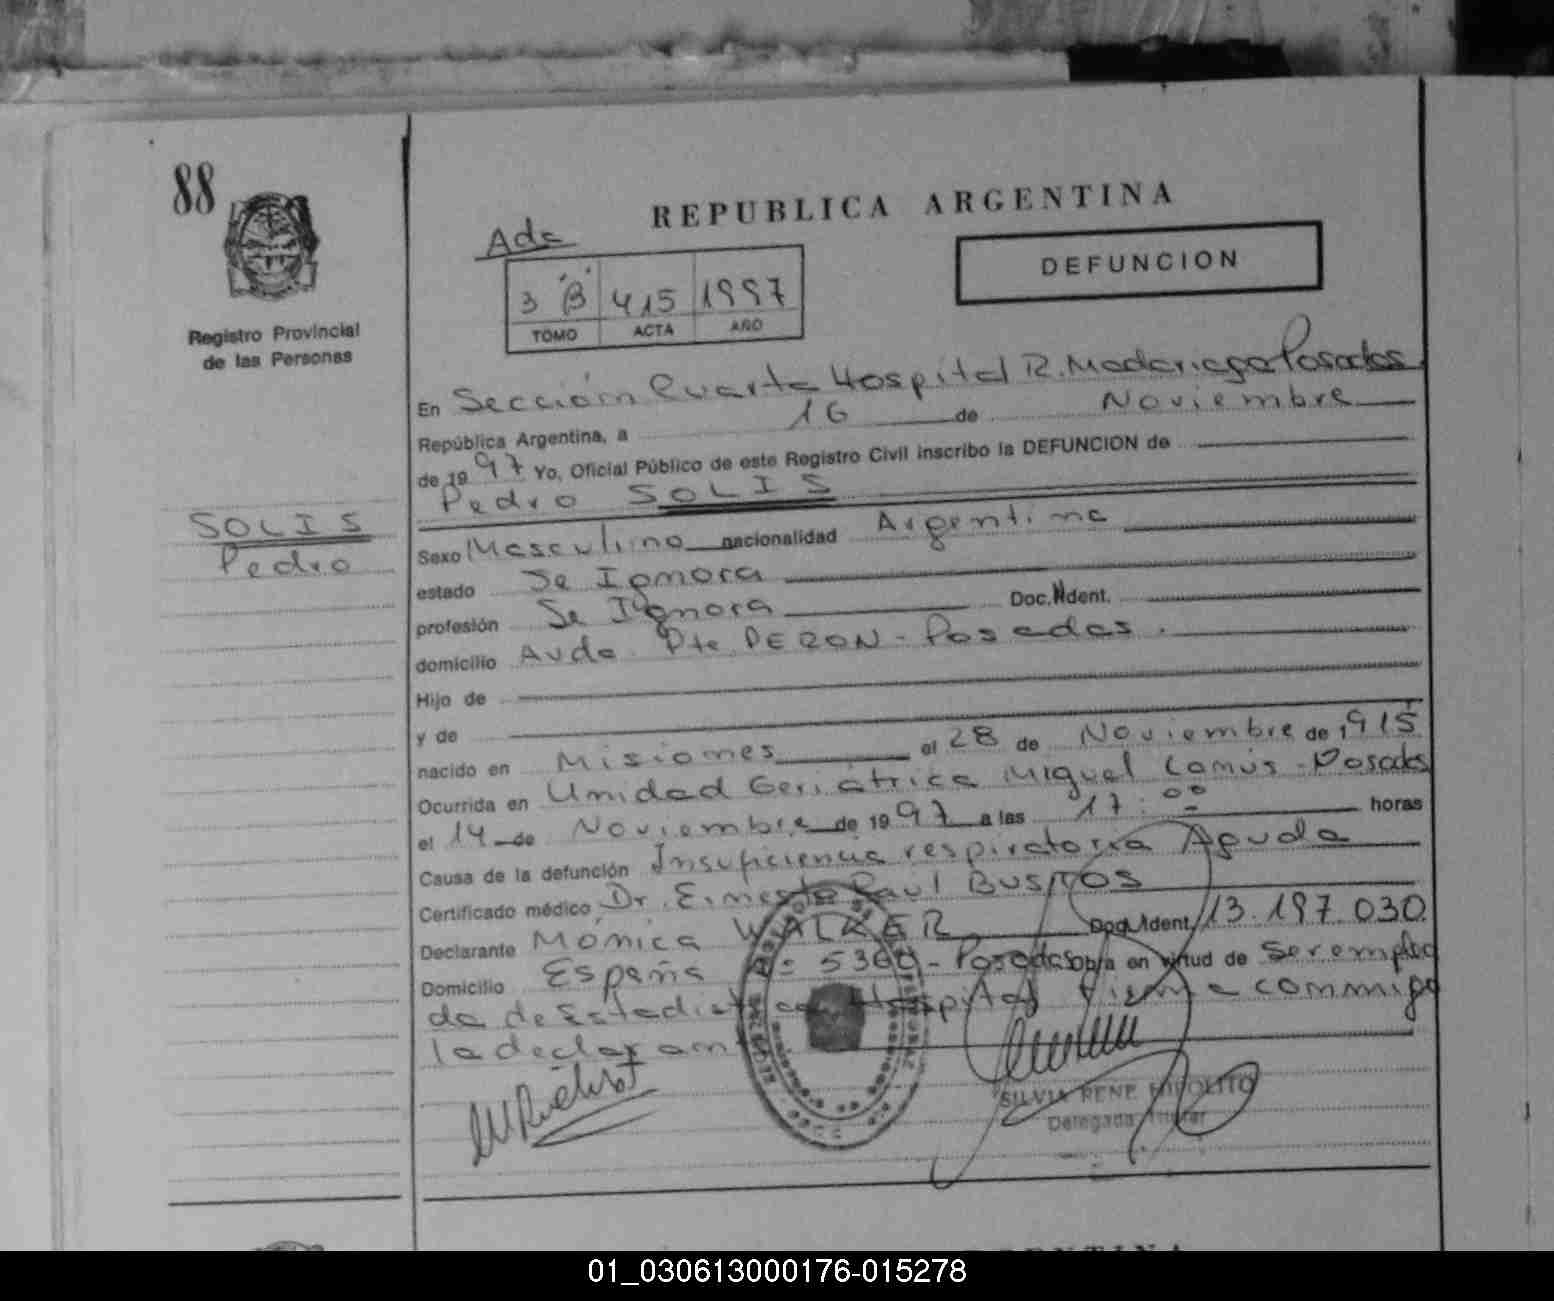 88
REPUBLICA ARGENTINA
Ada
DEFUNCION
3 "B" 415 1997
TOMO ACTA AÑO
Registro Provincial
de las Personas
En Sección Cuarta Hospital R. Madariaga Posadas
República Argentina, a 16 de Noviembre
de 1997 Yo, Oficial Público de este Registro Civil inscribo la DEFUNCION de
Pedro SOLIS
SOLIS
Pedro
Sexo Masculino nacionalidad Argentina
estado Se Ignora
profesión Se Ignora Doc. Ident.
domicilio Avda. Pte PERON - Posadas.
Hijo de
y de
nacido en Misiones el 28 de Noviembre de 1915
Ocurrida en Unidad Geriátrica Miguel Lanús - Posadas
el 14 de Noviembre de 1997 a las 17:00 horas
Causa de la defunción Insuficiencia respiratoria Aguda
Certificado médico Dr. Ernesto Raúl BUSTOS
Declarante Mónica WALKER Doc. Ident. 13.197.030
Domicilio España 5360 - Posadas obra en virtud de ser emplea
da de Estadistica Hospital Firma conmigo
la declarante
SILVIA RENE HIPOLITO
Delegada Titular
01_030613000176-015278